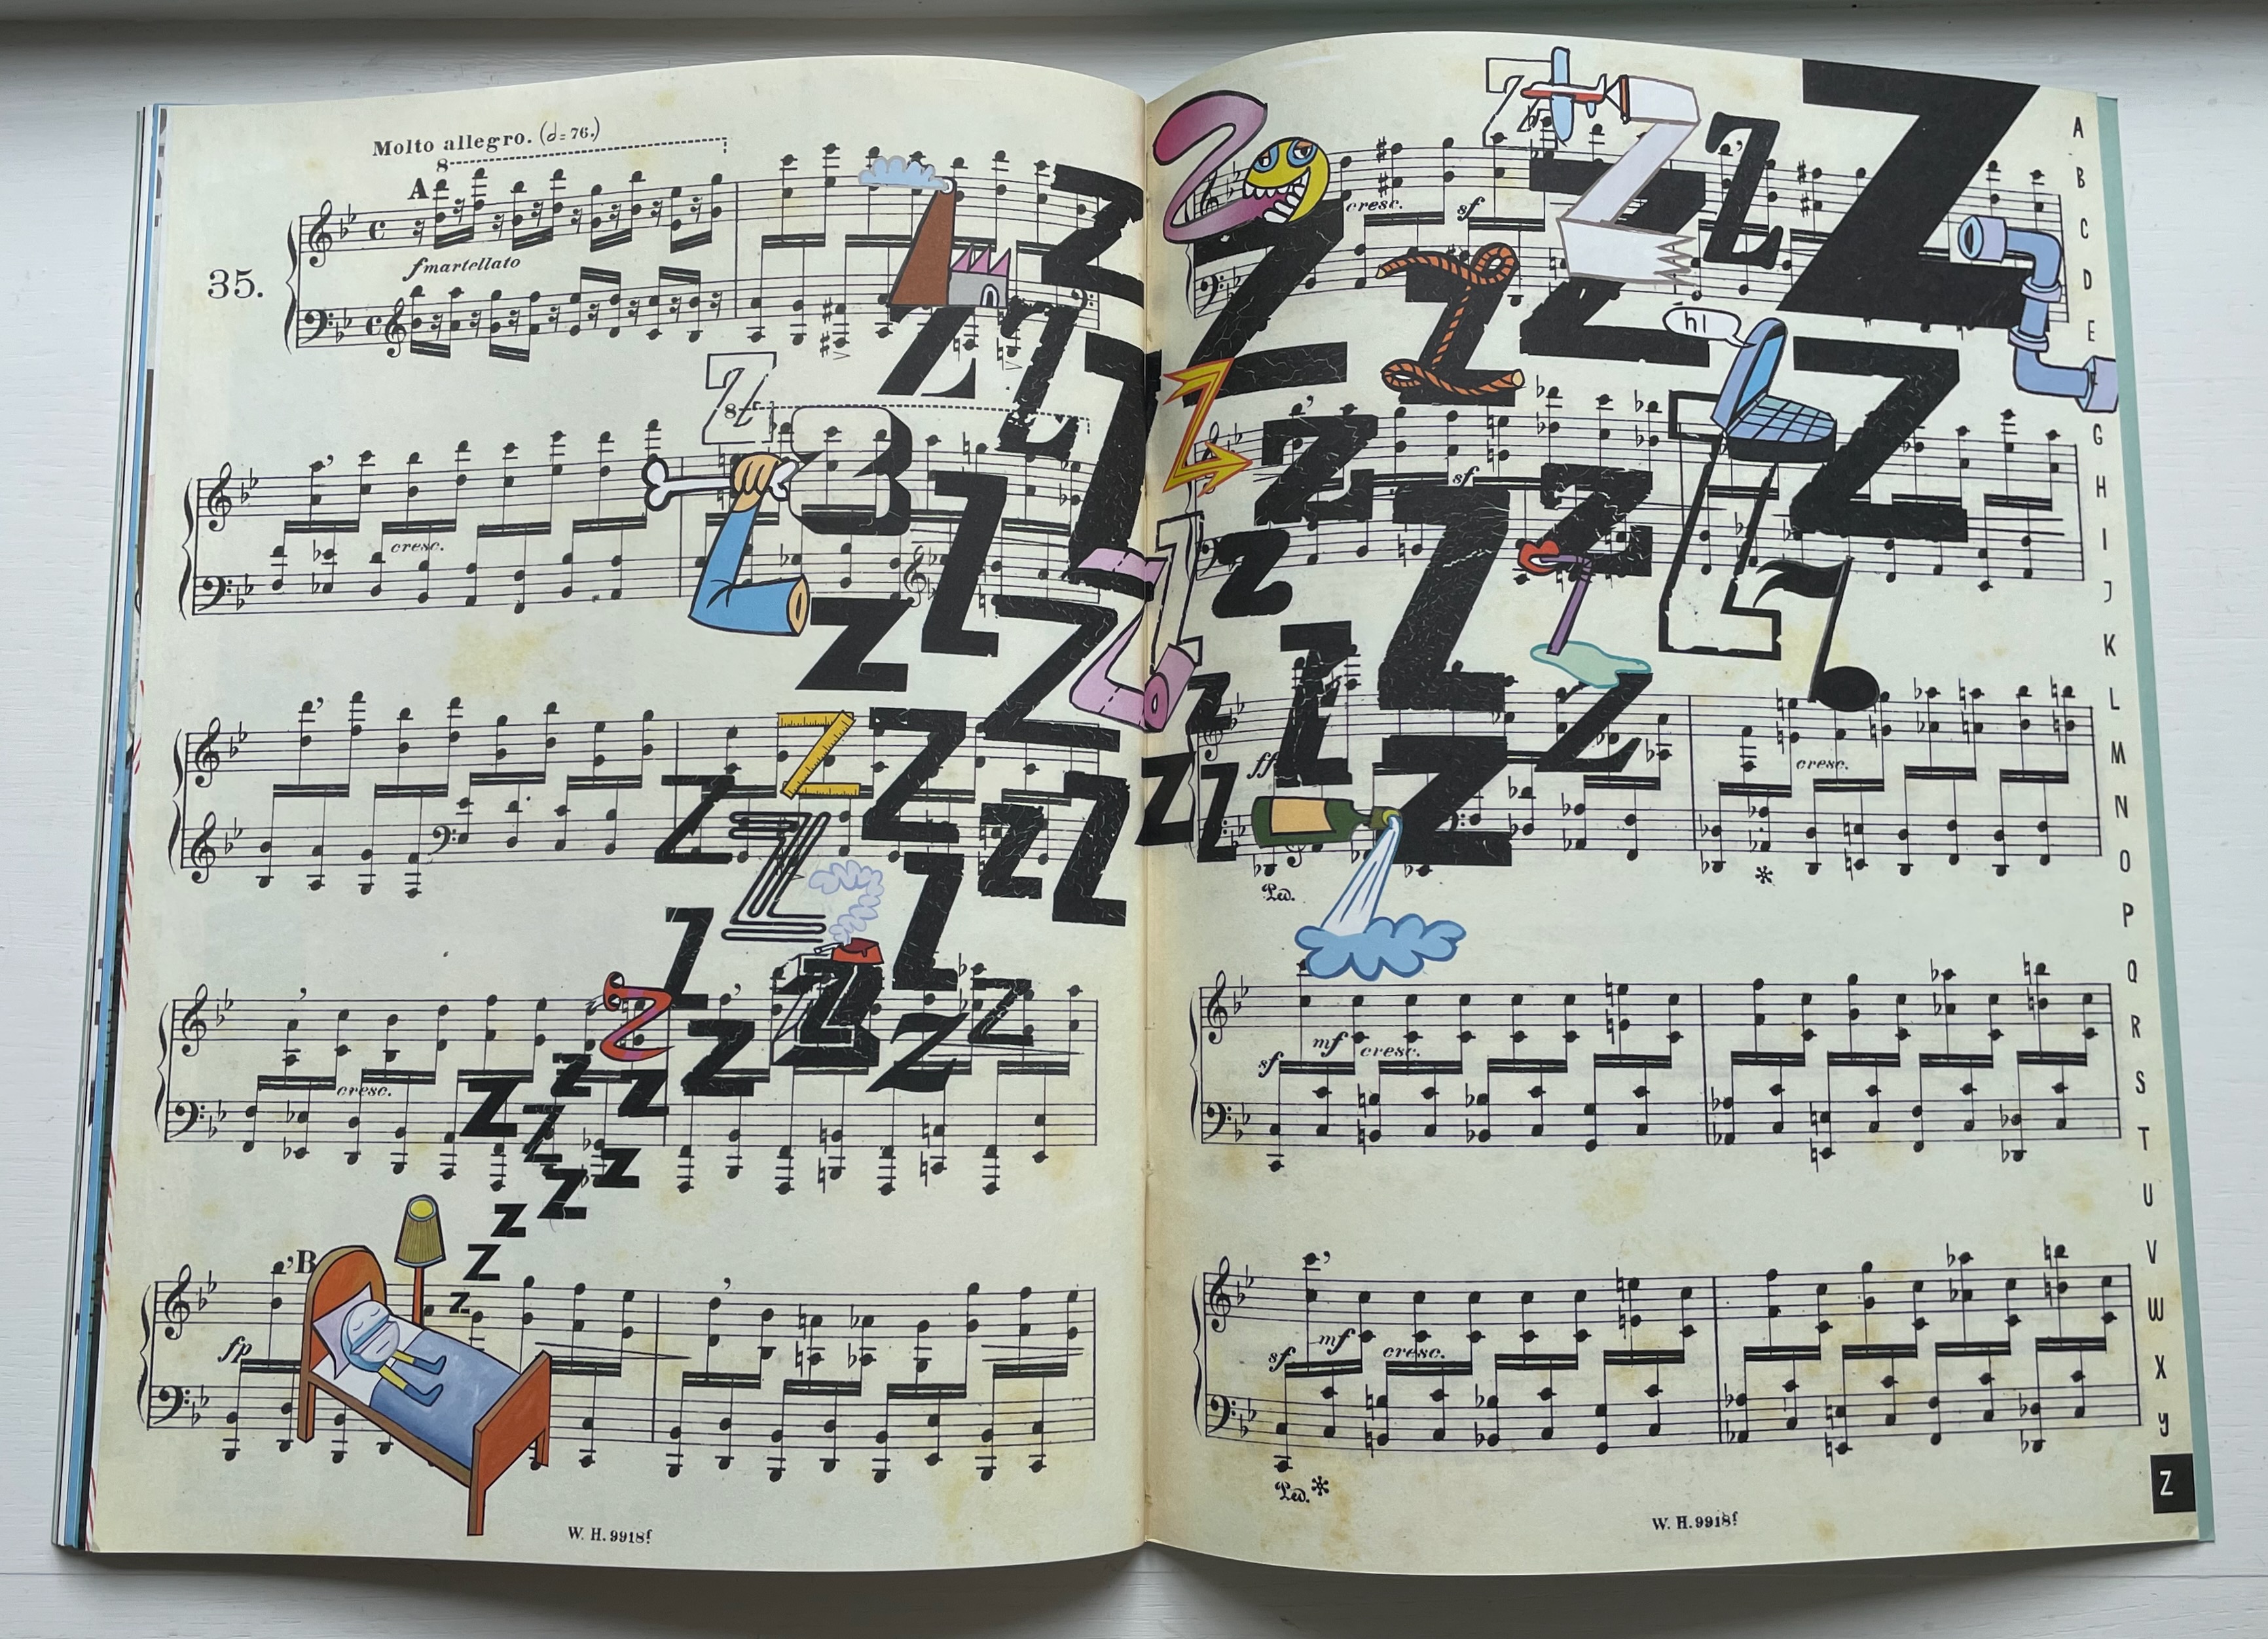 Molto allegro. (𝅗𝅥 = 76.)
8
A
35.
f martellato
Z Z Z
Z
8
cresc.
Z Z Z Z
Z Z Z Z Z
Z Z
Z Z Z Z Z
cresc.
Z Z Z Z
Z
Z
Z
B
Z
fp
W. H. 9918f
Z Z Z Z
cresc.
sf
Z Z Z Z
hi
Z Z Z
sf
Z Z Z Z
Z Z Z
ff
cresc.
Z Z Z
Ped. *
sf mf cresc.
sf mf cresc.
Ped. *
W. H. 9918f
A
B
C
D
E
G
H
I
J
K
L
M
N
O
P
Q
R
S
T
U
V
W
X
y
Z